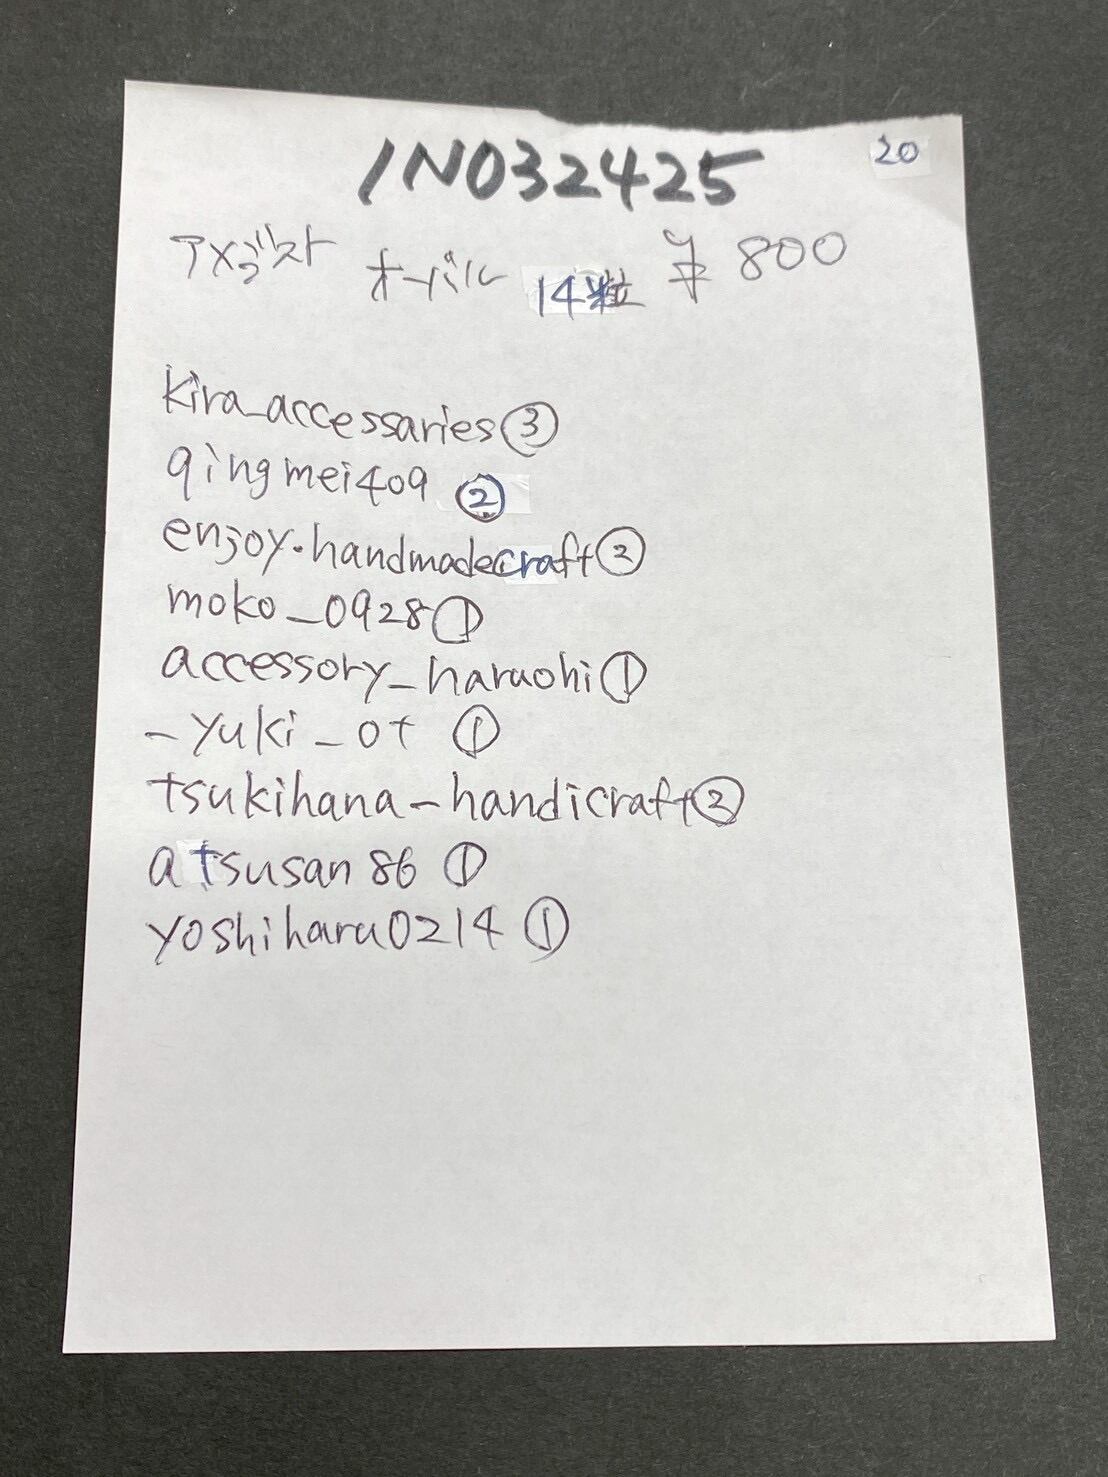 INO32425
20
アメジスト オーバル 14粒 ¥800
kira_accessaries③
qingmei409 ②
enjoy.handmadecraft②
moko_0928①
accessory_haruohi①
_yuki_ot ①
tsukihana_handicraft②
atsusan86 ①
yoshiharu0214 ①